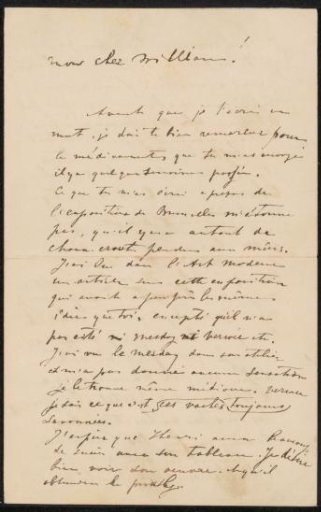 mon cher William!
Avant que je t'écris un
mot, je dois te bien remercier pour
le médicaments que tu m'as envoyé
il y a quelques semaines
Ce que tu m'as écrit a propos de
l'exposition de Bruxelles m'étonne
pas, qu'il y aura autant de
choucroute pendue aux mûrs.
J'ai lu dans l'Art moderne
un article sur cette exposition
qui avait a peu près le même
idée que toi, excepté qu'il n'a
pas cité ni mesdag ni Verwee etc.
J'ai vu le mesdag dans son atelier
et m'a pas donnée aucune sensation
je le trouve même médiocre. Verwee
je sais ce que c'est, ses vaches toujours
savonnées.
J'espère que Henri aura
de avec son tableau. Je désire
bien voir son oeuvre.